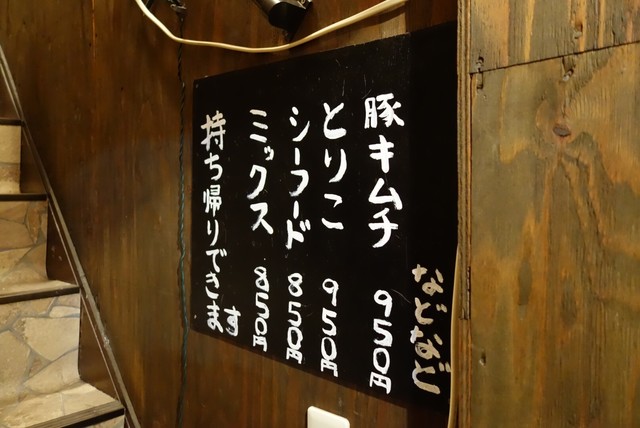 豚キムチ 950円
とりこ 950円
シーフード 850円
ミックス 850円
持ち帰りできます
などなど